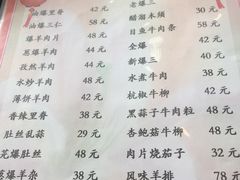 油爆里脊 42元
油爆三仁 58元
爆羊肉片 42元
葱爆羊肉 44元
孜然羊肉 44元
水炒羊肉 48元
薄饼羊肉 42元
香辣里脊 38元
肚丝乱蒜 29元
芫爆肚丝 48元
葱爆羊杂
老爆三 30元
醋溜木须
目鱼牛肉条 58元
全爆 42元
新爆三 40元
水煮牛肉 38元
杭椒牛柳 42元
黑蒜子牛肉粒 48元
杏鲍菇牛柳 48元
肉片烧茄子 32元
风味羊排 78元